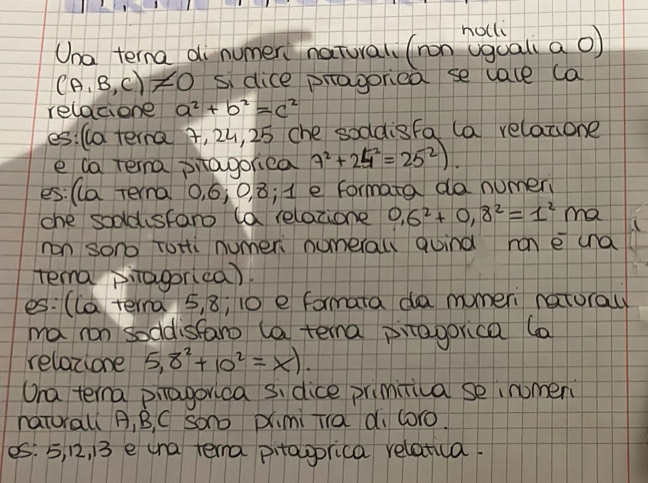 nolli
Una terna di numeri naturali (non uguali a 0)
(A, B, C) ≠ 0 si dice pitagorica se vale la
relazione a² + b² = c²
es: (la terna 7, 24, 25 che soddisfa la relazione
e la terna pitagorica 7² + 24² = 25²).
es: (la terna 0,6; 0,8; 1 e formata da numeri
che soddisfano la relazione 0,6² + 0,8² = 1² ma
non sono tutti numeri numerali quindi non è una
terna pitagorica).
es: (la terna 5,8; 10 e formata da numeri naturali
ma non soddisfano la terna pitagorica la
relazione 5,8² + 10² = x).
Una terna pitagorica si dice primitiva se i numeri
naturali A, B, C sono primi tra di loro.
es: 5, 12, 13 e una terna pitagorica relativa.